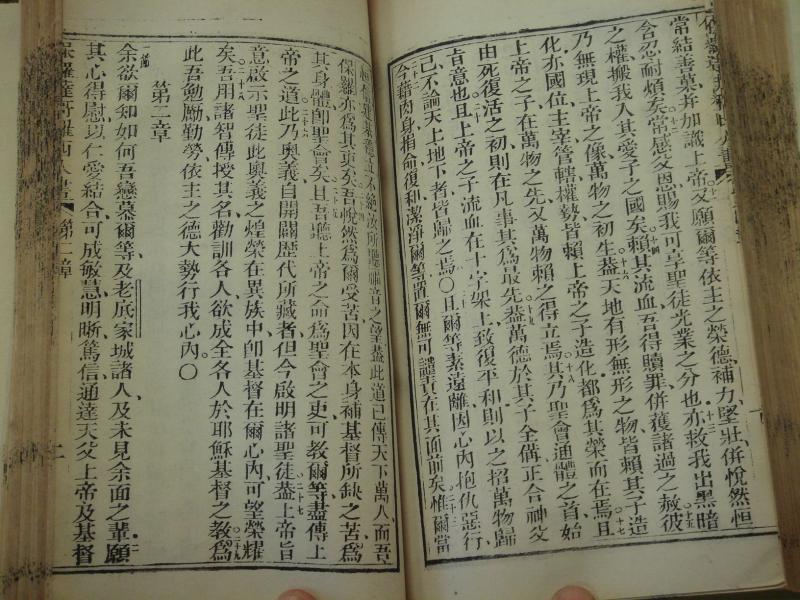 常結善菓并加識上帝○又願爾等依主之榮德補力堅壯併悅然恒
含忍耐煩矣常感父恩賜我可享聖徒光業之分也亦救我出黑暗
之權搬我入其愛子之國矣賴其流血吾得贖罪併獲諸過之赦彼
乃無現上帝之像萬物之初生蓋天地有形無形之物皆賴其子造
化亦國位主宰管轄權勢皆賴上帝之子造化都為其榮而在焉且
上帝之子在萬物之先又萬物賴之得立焉其乃聖會通體之首始
由死復活之初則在凡事其為最先蓋萬德於其子全備正合神父
旨意也且上帝之子流血在十字架上致復平和則以之招萬物歸
己不論天上地下者皆歸之焉○且爾等素遠離因心內抱仇惡行
今藉肉身捐命復和潔淨爾等置爾無可譴責在其面前矣惟爾當
不絕汝所聽福音之望蓋此道已傳天下萬人而吾
保羅亦為其吏矣吾悅然為爾受苦因在本身補基督所缺之苦為
其身體卽聖會矣且吾聽上帝之命為聖會之吏可教爾等盡傳上
帝之道此乃奧義自開闢歷代所藏者但今啟明諸聖徒蓋上帝旨
意啟示聖徒此奧義之煌榮在異族中卽基督在爾心內可望榮耀
矣吾用諸智傳授其名勸訓各人欲成全各人於耶穌基督之教為
此吾勉勵勤勞依主之德大勢行我心內○
第二章
一節
余欲爾知如何吾戀慕爾等及老底家城諸人及未見余面之輩願
其心得慰以仁愛結合可成敏慧明晰篤信通達天父上帝及基督
保羅達哥羅西人書
第二章
二